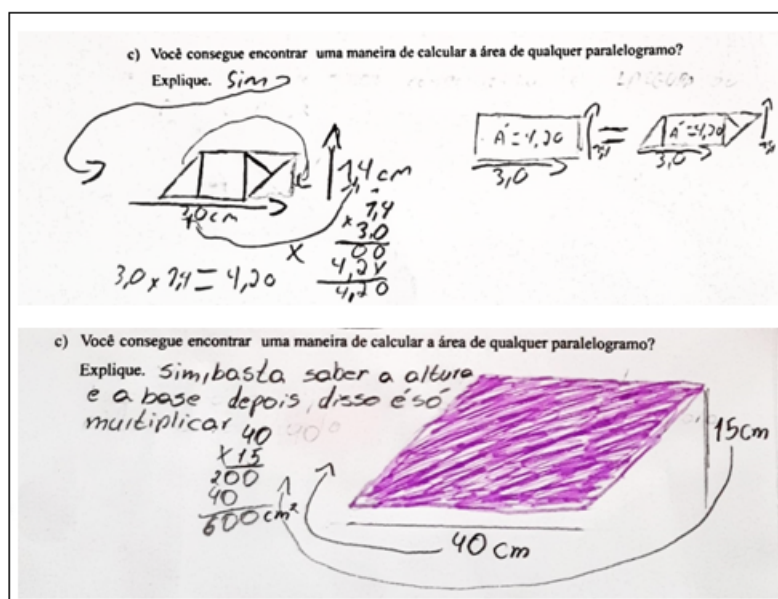 c) Você consegue encontrar uma maneira de calcular a área de qualquer paralelogramo?
Explique. Sim
1,4 cm
3,0 cm
X
1,4
x 3,0
00
4,2
4,20
3,0 x 1,4 = 4,20
A = 4,20
3,0
=
A = 4,20
3,0
c) Você consegue encontrar uma maneira de calcular a área de qualquer paralelogramo?
Explique. Sim, basta saber a altura
e a base depois, disso é só
multiplicar
40
X 15
200
40
600 cm²
15cm
40 cm